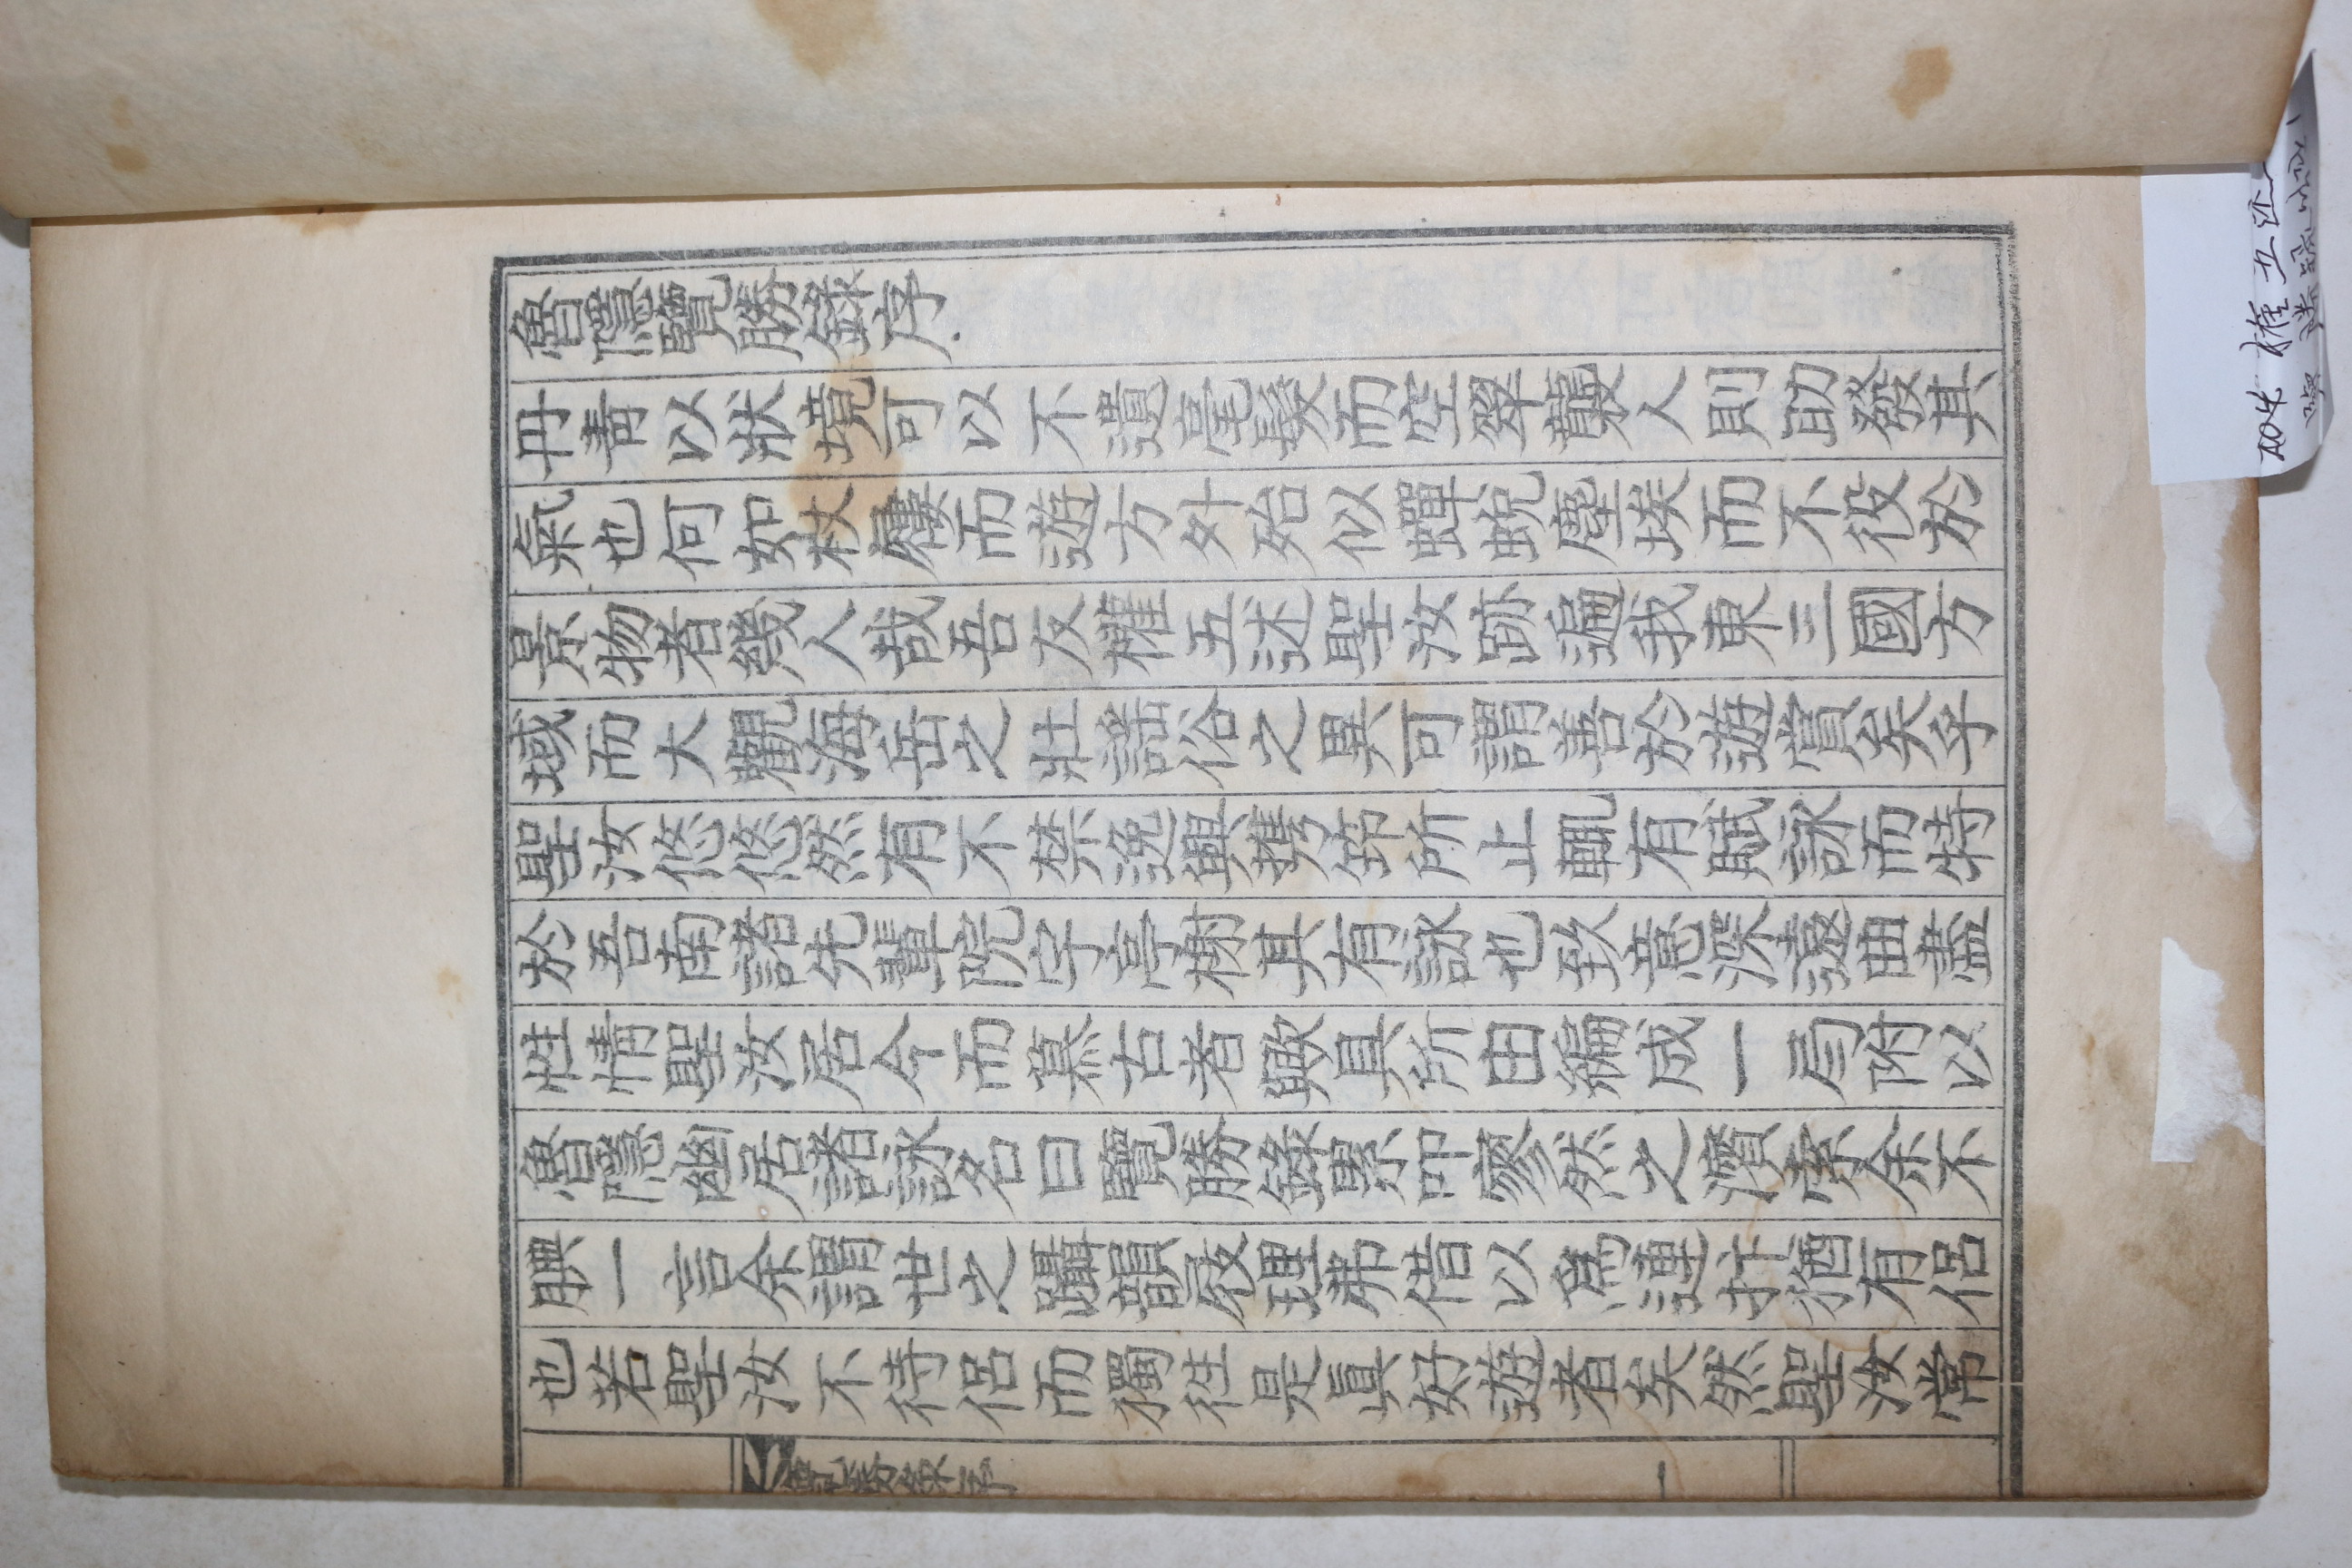 魯隱覽勝錄序
丹青以狀境可以不遺毫髮而空翠襲人則助發其
氣也何如杖屨而遊方外殆似蟬蛻塵埃而不役於
景物者幾人哉吾友權五述聖汝跡遍我東三國方
域而大觀海岳之壯謠俗之異可謂善於遊賞矣乎
聖汝悠悠然有不禁逸興携筇所止輒有賦詠而特
於吾南諸先輩院宇亭榭其有詠也致意深邃曲盡
性情聖汝居今而慕古者歟具所由編成一局附以
魯隱幽居諸詠名曰覽勝錄累叩寥然之濱索余不
腆一言余謂世之躡韻發理常借以爲逹於猶有侶
也若聖汝不待侶而獨往是眞好遊者矣然聖汝常
覽勝錄序
一
A04 權五述